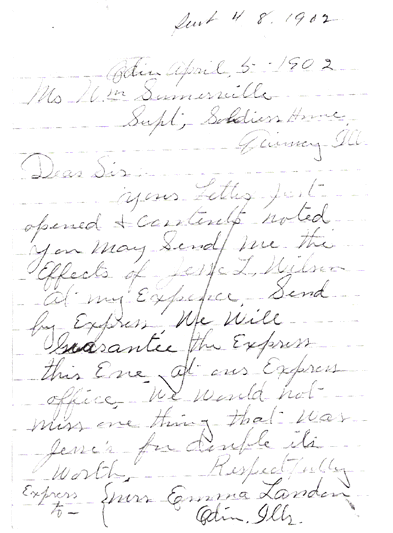 Sent 4 8. 1902
Odin April, 5. 1902
Ms Wm Sumerville
Supt, Soldiers Home,
Quincy Ill.
Dear Sir.
Your Letter Just
opened & contents noted
You May Send me the
Effects of Jesse L, Wilson
at my Expence. Send
by Express, We Will
Guarantee the Express
this End, at our Express
office, We Would not
miss one thing that was
Jesse's for double its
Worth. Respectfully
Express { Mrs Emma Landon
to - Odin. Ills.